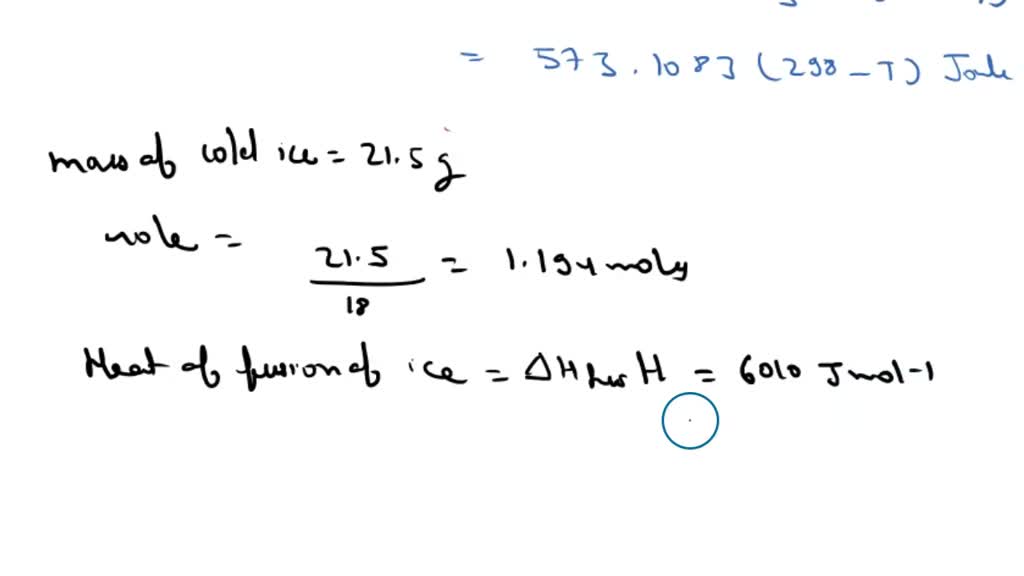 = 573.1083 (298-T) Joule
mass of cold ice = 21.5 g
mole = 21.5 / 18 = 1.194 moly
Heat of fusion of ice = ΔH fus H = 6010 J mol-1